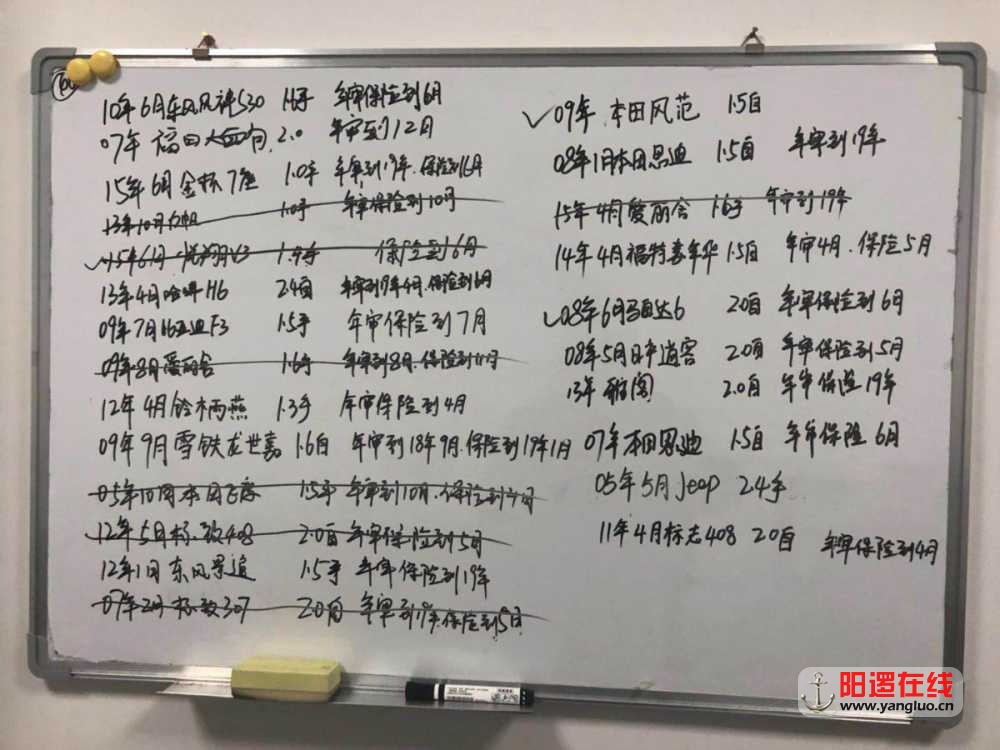 10年6月东风风神S30 1.6手 年审保险到6月
07年 福田大面包 2.0 年审到12月
15年6月金杯7座 1.0手 年审到19年.保险到6月
13年10月 1.0手 年审保险到10月
15年6月 悦翔V3 1.4手 保险到6月
13年4月哈弗H6 2.4自 年审到19年4月.保险到6月
09年7月比亚迪F3 1.5手 年审保险到7月
09年8月爱丽舍 1.6手 年审到8月.保险到11月
12年4月铃木雨燕 1.3手 年审保险到4月
09年9月雪铁龙世嘉 1.6自 年审到18年9月.保险到19年1月
05年10月本田飞度 1.5手 年审到10月.保险到
12年5月标致408 2.0自 年审保险到5月
12年1月东风景逸 1.5手 年审保险到19年
07年2月标致307 2.0自 年审到19年.保险到5月
09年.本田风范 1.5自
08年1月本田思迪 1.5自 年审到19年
15年4月爱丽舍 1.6手 年审到19年
14年4月福特嘉年华 1.5自 年审4月.保险5月
08年6月马自达6 2.0自 年审保险到6月
08年5月日产逍客 2.0自 年审保险到5月
13年雅阁 2.0自 年审保险19年
07年本田思迪 1.5自 年审保险6月
05年5月Jeep 2.4手
11年4月标志408 2.0自 年审保险到4月
阳逻在线
www.yangluo.cn